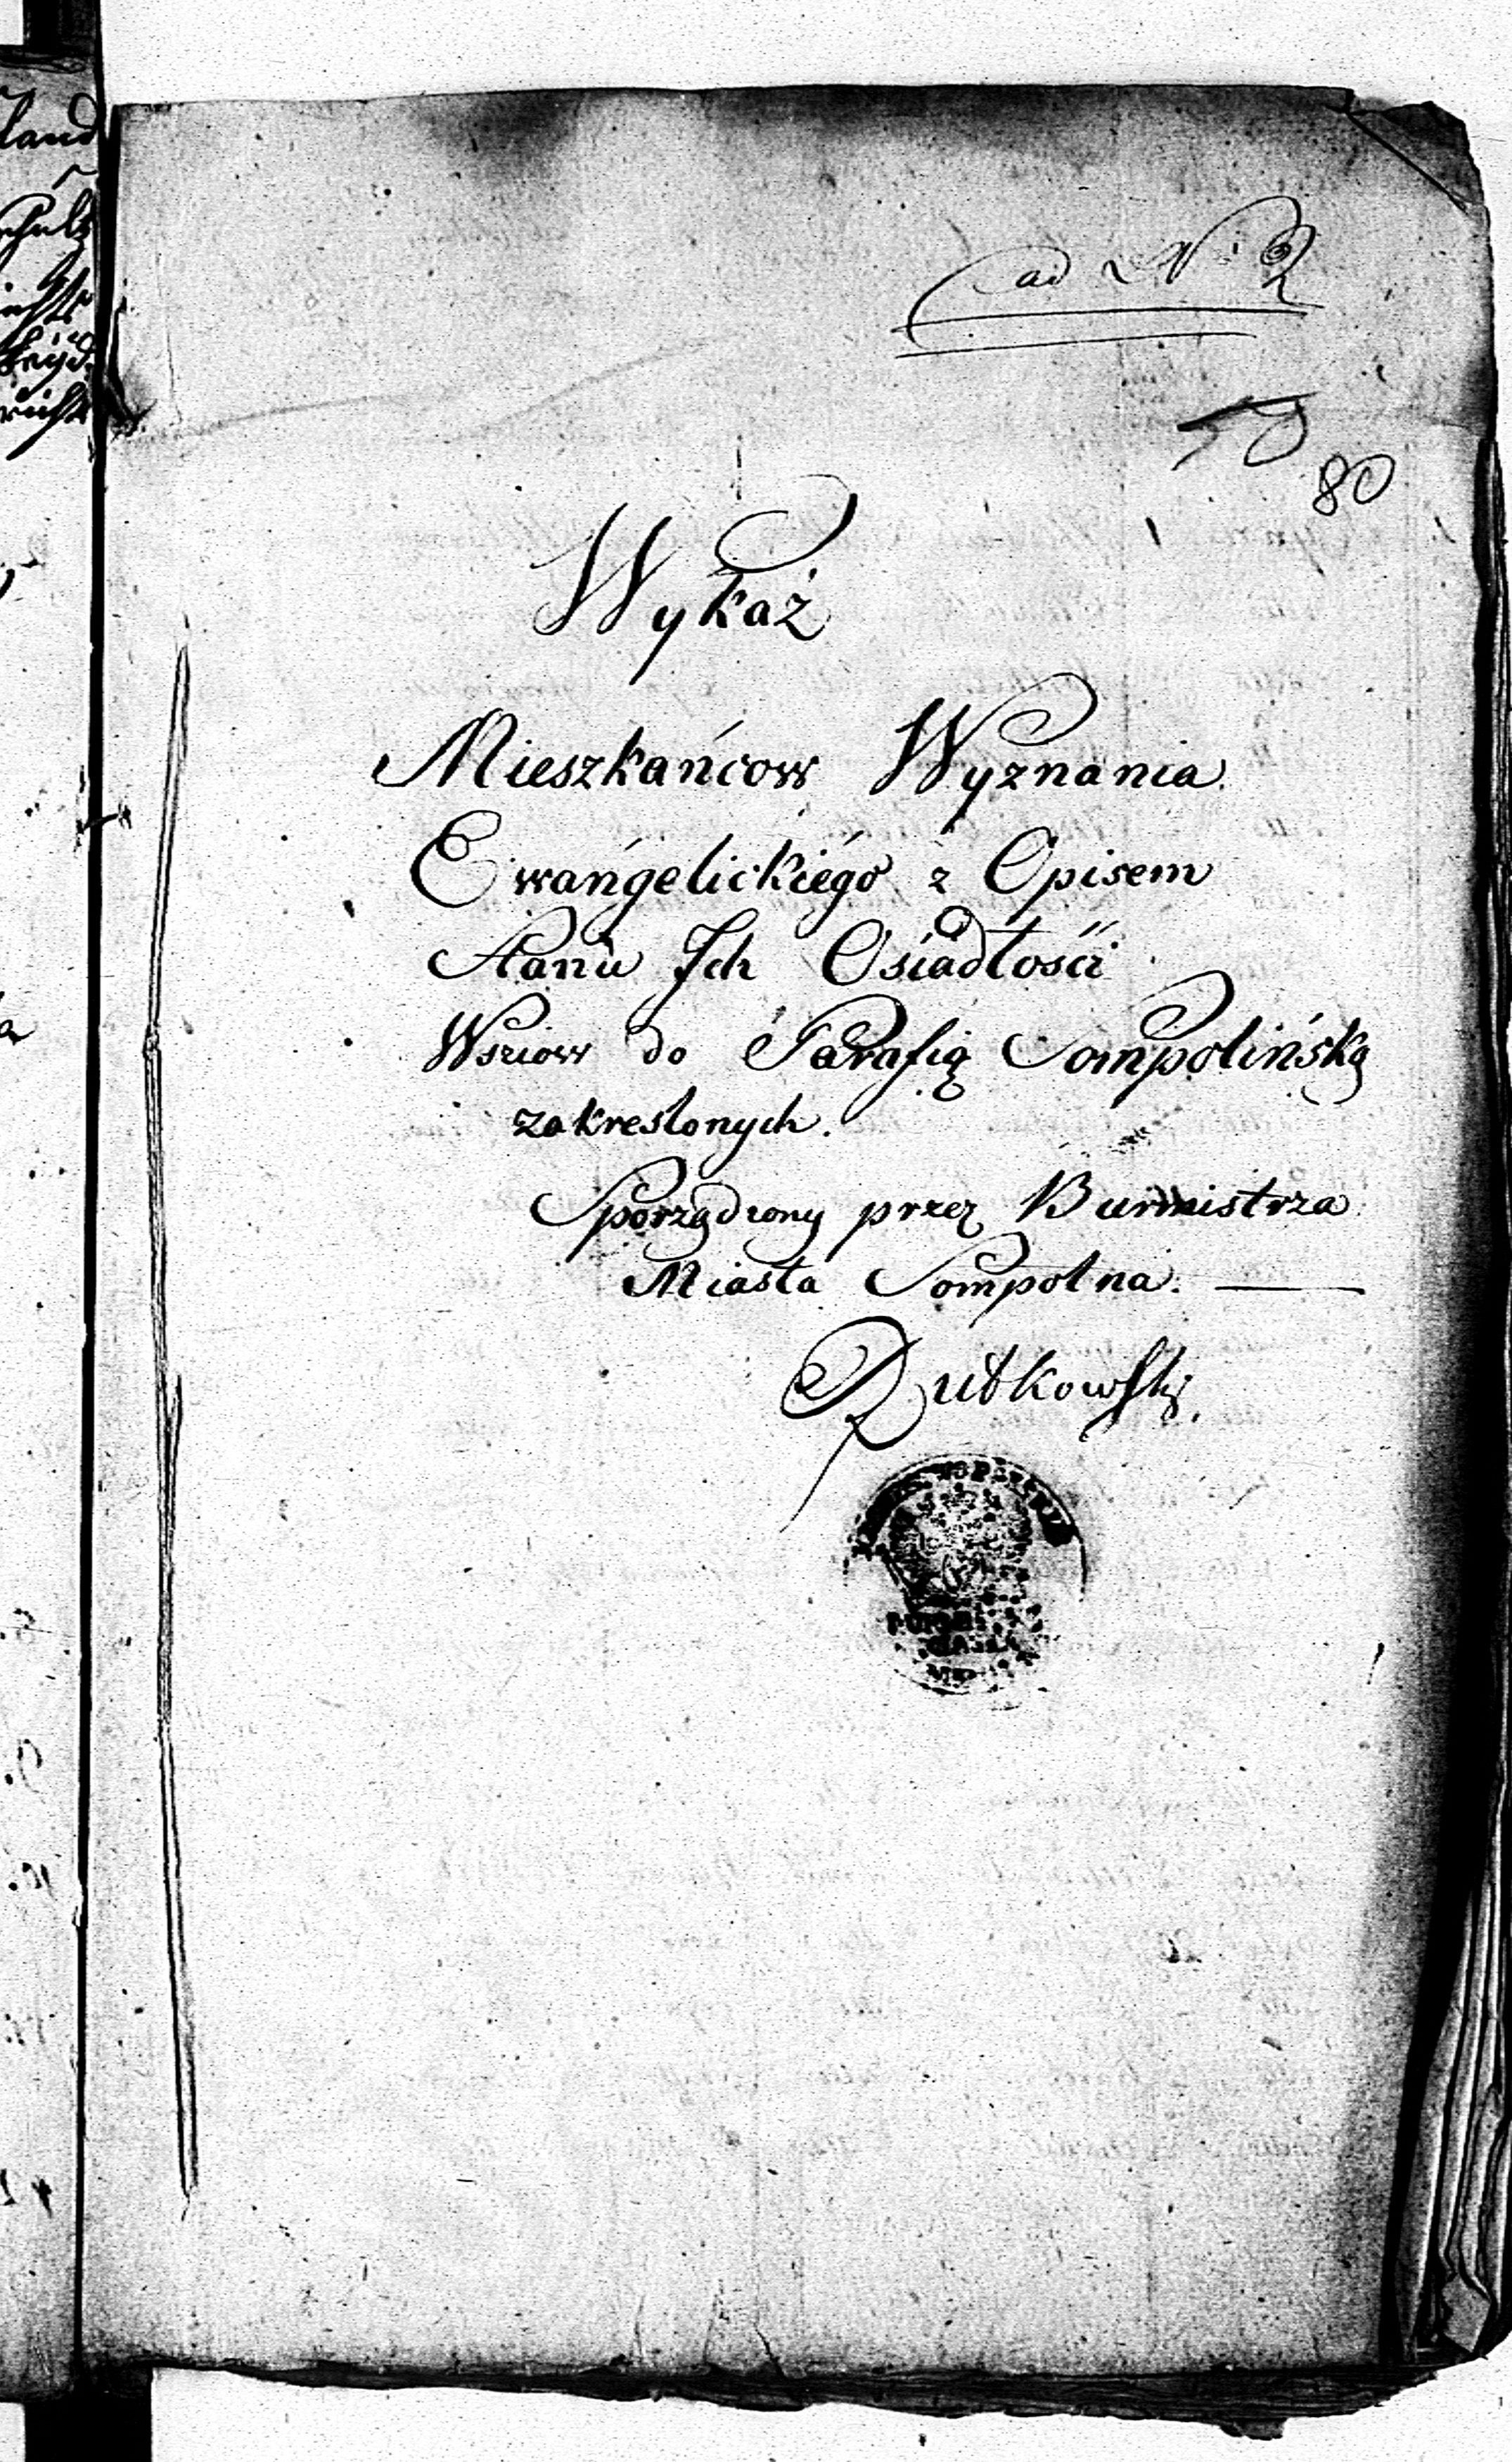 ad N: 2
50
80
Wykaż
Mieszkańcow Wyznania
Ewangelickiégo z Opisem
Stanu Ich Osiadłości
Wsziow do Parafią Sompolińską
zakreslonych.
Sporządzony przez Burmistrza
Miasta Sompolna.
Rutkowski.